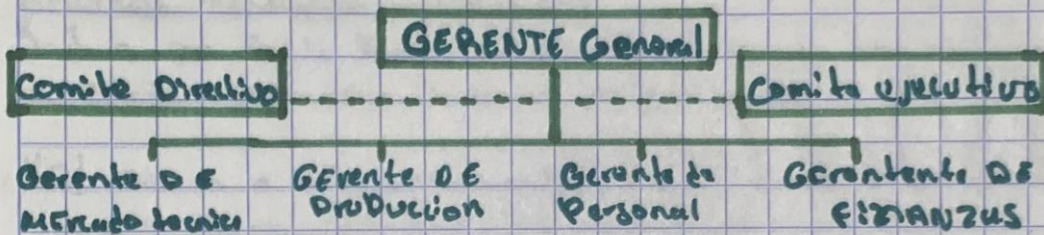 GERENTE General
Comite Directivo
Comite ejecutivo
Gerente DE
MErcado tecnico
GErente DE
PrODuccion
Gerente de
Personal
Gerontente DE
FINANZUS